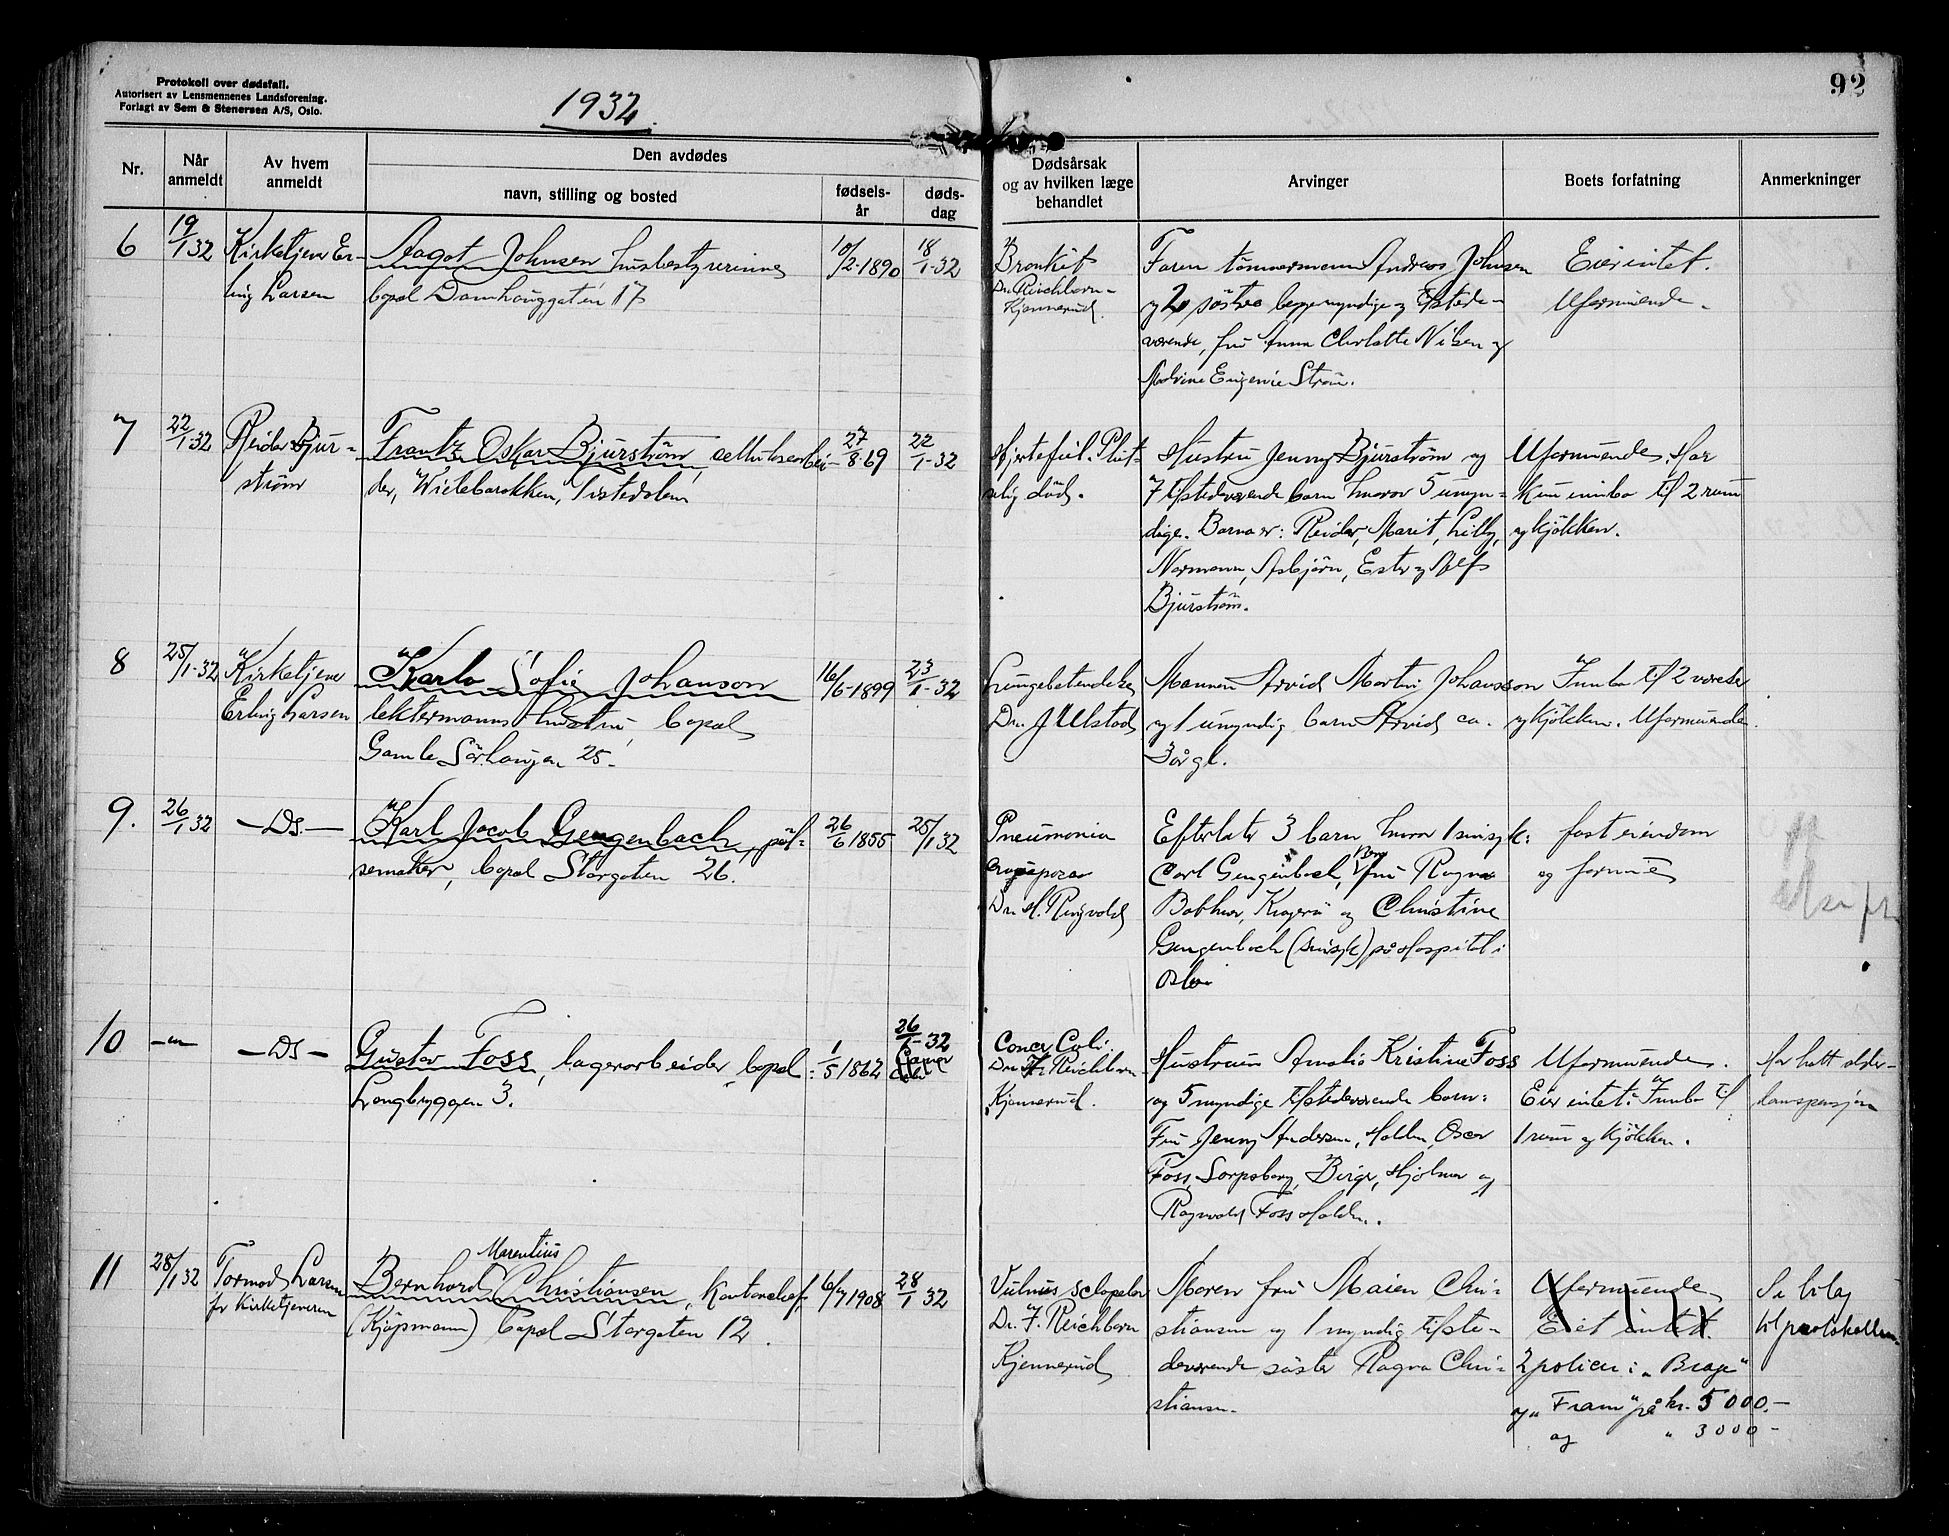 Protokoll over dødsfall.
Autorisert av Lensmennenes Landsforening.
Forlagt av Sem & Stenersen A/S, Oslo.
1932.
92
Nr.
Når anmeldt
Av hvem anmeldt
Den avdødes
navn, stilling og bosted
fødsels-år
døds-dag
Dødsårsak og av hvilken læge behandlet
Arvinger
Boets forfatning
Anmerkninger
6
19/1 32
Kirketjener Er-
ling Larsen
Aagot Johnsen husbestyrerinne
bopæl Damhauggaten 17
10/2-1890
18/1-32
Bronkit
Dr. Reichborn-
Kjennerud.
Faren tømmermann Andreas Johnsen
og 2 søstre begge myndige og tilstede-
værende, fru Anna Charlotte Nilsen og
Eugenie Strøm.
Eier intet.
Uformuende.
7
22/1 32
Reidar Bjur-
strøm
Frantz Oskar Bjurstrøm, cellulosearbei-
der, Wielebarakken, Tistedalen
27/8-69
22/1-32
Hjertefeil. Plut-
selig død.
Hustru Jenny Bjurstrøm og
7 tilstedeværende barn hvorav 5 umyn-
dige. Barna er: Reidar, Marit, Lilly,
Normann, Asbjørn, Ester og Alf
Bjurstrøm.
Uformuende. Har
kun innbo til 2 rum
og kjøkken.
8
25/1-32
Kirketjener
Erling Larsen
Karla Sofie Johanson
lektermanns hustru, bopæl
Gamle Sørhaugen 25.
16/6-1899
23/1-32
Lungebetendelse
Dr. J Ulstad
Mannen Arvid Martin Johansson
og 1 umyndig barn Arvid ca.
3 år gl.
Innbo til 2 værelser
og kjøkken. Uformuende.
9.
26/1 32
— Ds. —
Karl Jacob Gengenbach, pøl-
semaker, bopæl Storgaten 26.
26/6 1855
25/1 32
Pneumonia
Dr. H. Ringvold
Efterlater 3 barn hvorav 1 sinsyk:
Carl Gengenbach, fru Ragna
Kragerø og Christine
Gengenbach (sinsyk) på Hospital i
Oslo
fast eiendom
og formue
10
— " —
— Ds —
Gustav Foss, lagerarbeider, bopæl:
Langbryggen 3.
1/5 1862
26/1-32
Cancer
Coli
Cancer Coli.
Dr. F. Reichborn
Kjennerud.
Hustruen Amalie Kristine Foss
og 5 myndige tilstedeværende barn:
Fru Jenny Andersen, Halden, Oscar
Foss, Sarpsborg, Birger, Hjalmar og
Ragnvald Foss Halden.
Uformuende.
Eier intet. Innbo til
1 rum og kjøkken.
Har hatt alder-
domspensjon
11
28/1 32
Tormod Larsen
for kirketjeneren
Marentius
Bernhard Christiansen, Kontorchef
(Kjøpmann) bopæl Storgaten 12.
6/7 1908
28/1 32
Vulnus sclopetar
Dr. F. Reichborn
Kjennerud
Moren fru Maien Chri-
stiansen og 1 myndig tilste-
deværende søster Ragna Chri-
stiansen.
Uformuende
Eiet intet.
2 policer i „Brage"
og „Fram" på kr. 5 000.-
og " 3000 -
Se bilag
til protokollen